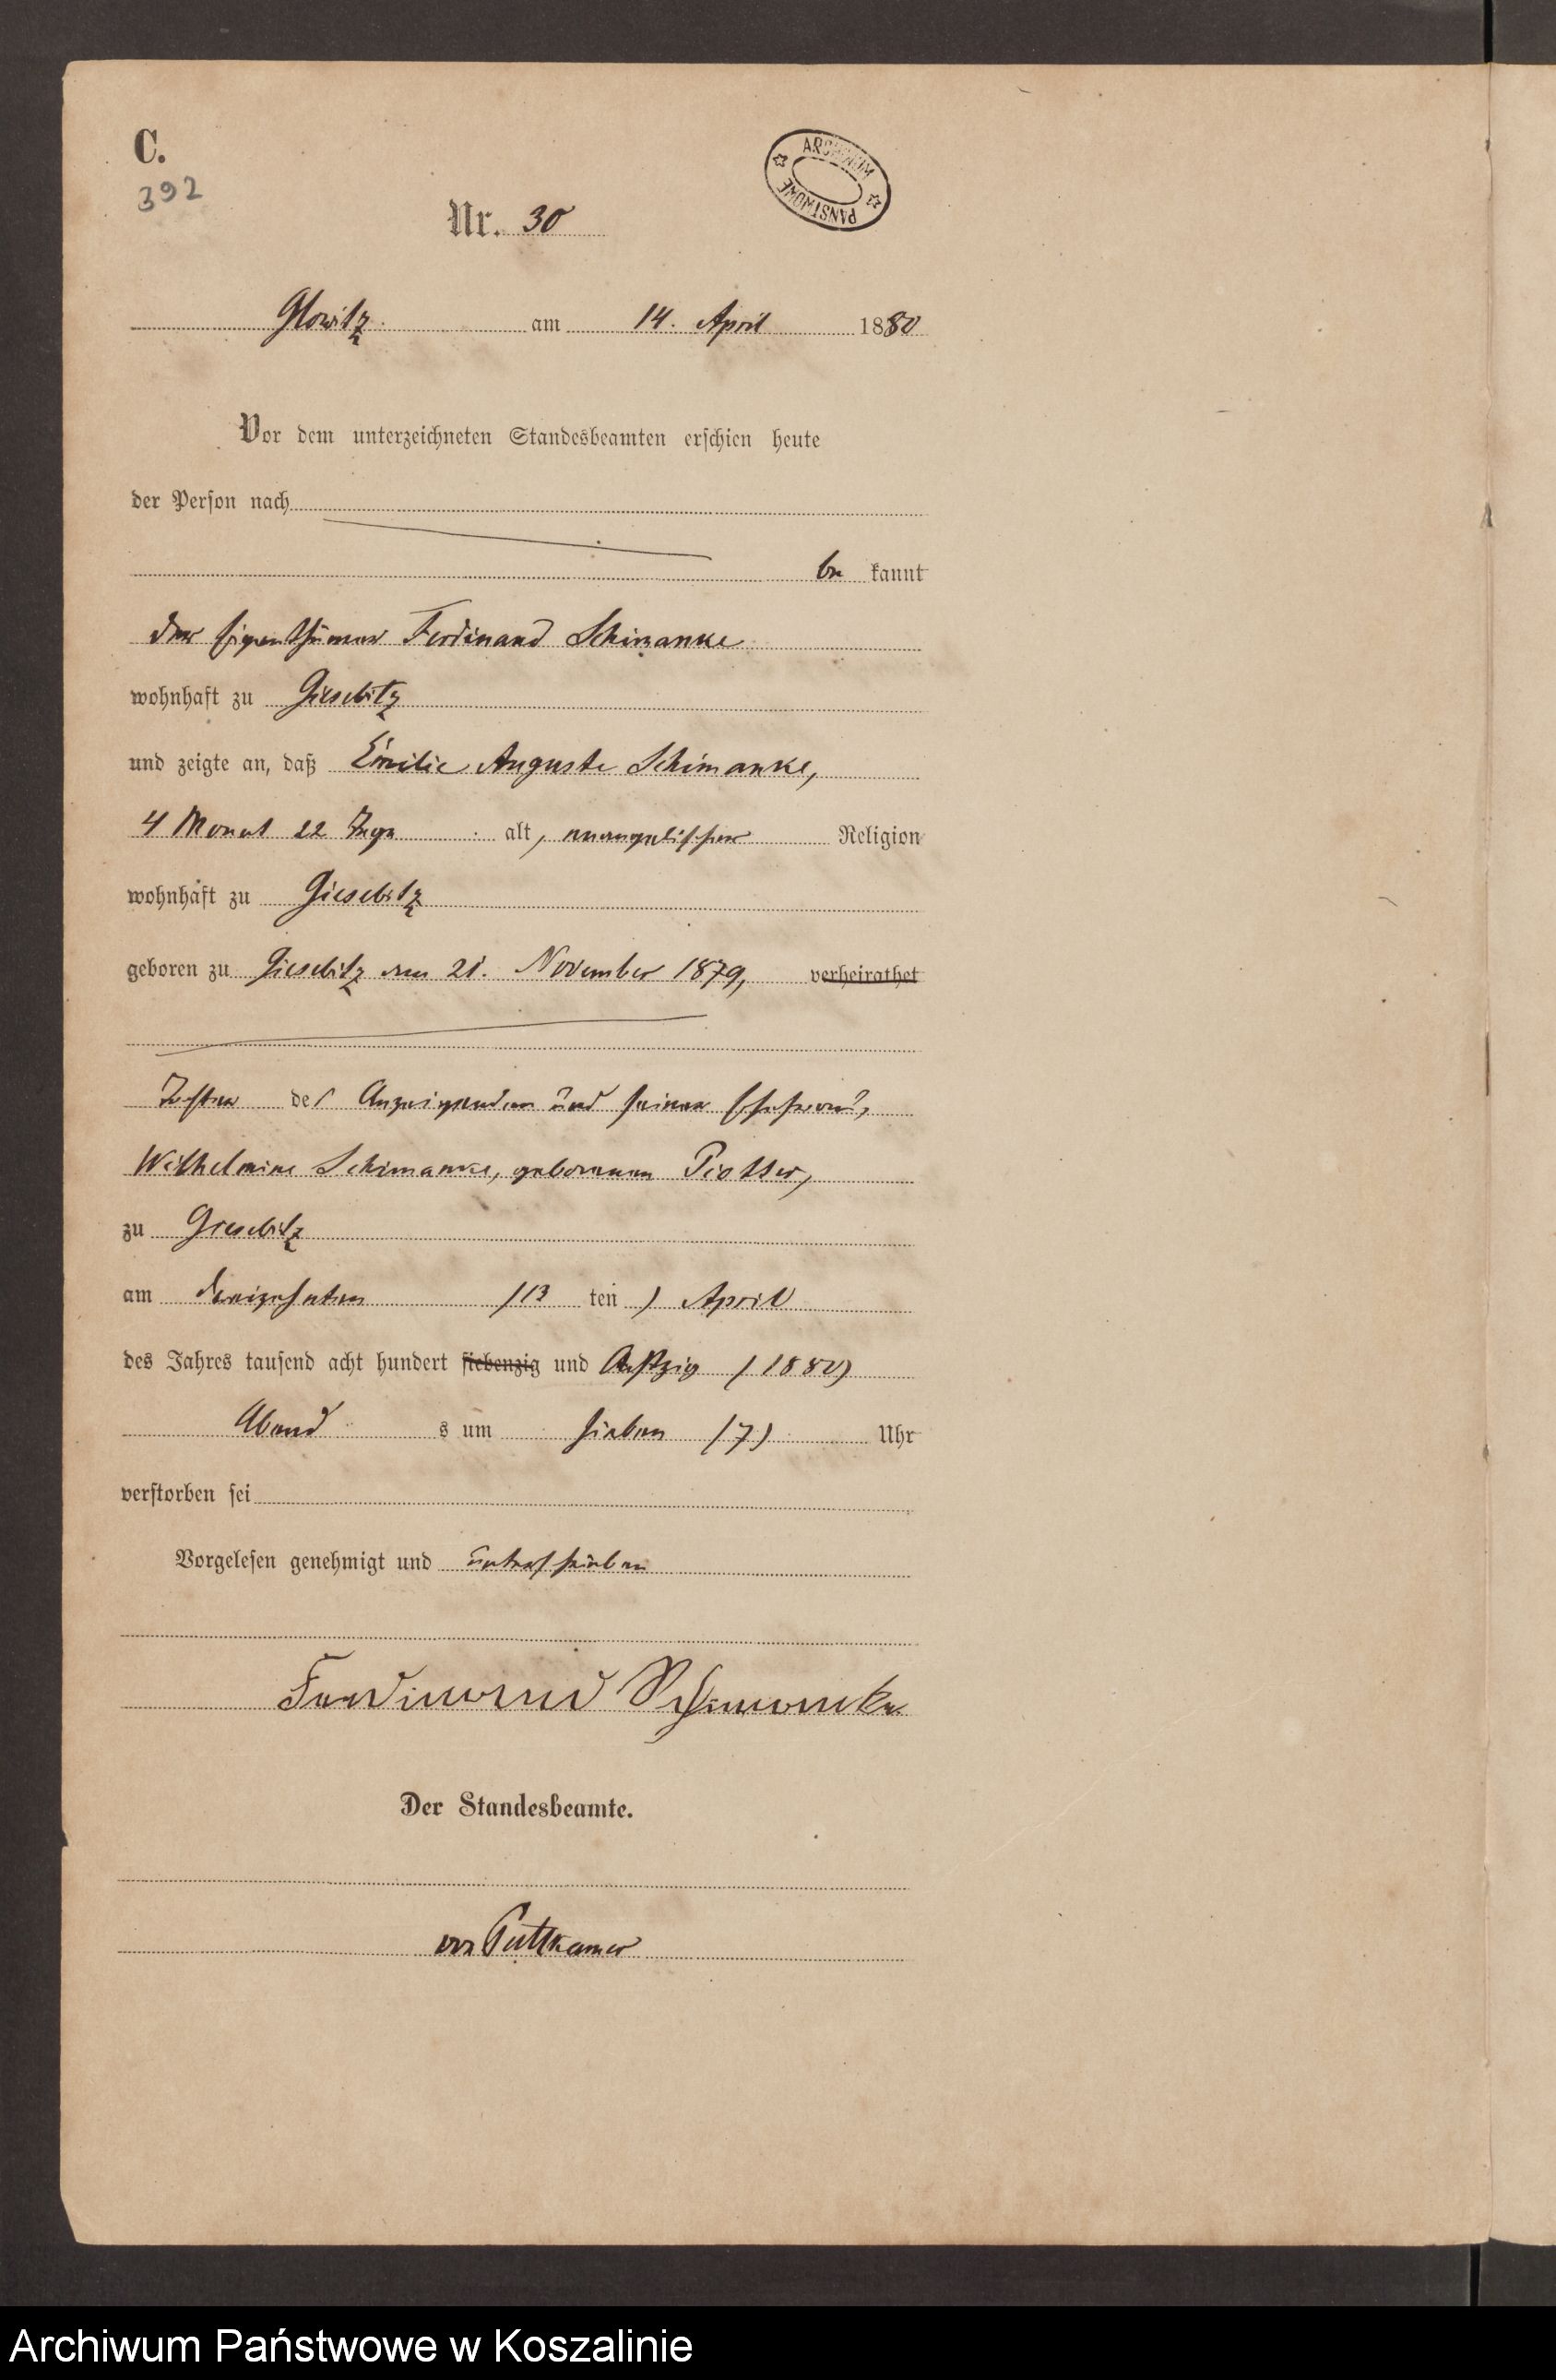 C.
392
ARCHIWUM
PAŃSTWOWE
Nr. 30
Glowitz am 14. April 1880
Vor dem unterzeichneten Standesbeamten erschien heute
der Person nach
be kannt
der Eigenthümer Ferdinand Schimanke
wohnhaft zu Gieselitz
und zeigte an, daß Emilie Auguste Schimanke,
4 Monat 22 Tage alt, evangelischer Religion
wohnhaft zu Giesebitz
geboren zu Giesebitz am 21. November 1879, verheirathet
Tochter des Anzeigenden und seiner Ehefrau,
Wilhelmine Schimanke, geborenen Piotter,
zu Giesebitz
am dreizehnten (13 ten ) April
des Jahres tausend acht hundert siebenzig und Achtzig (1880)
Abend s um sieben (7) Uhr
verstorben sei
Vorgelesen genehmigt und unterschrieben
Ferdinand Schimanke
Der Standesbeamte.
von Puttkamer
Archiwum Państwowe w Koszalinie